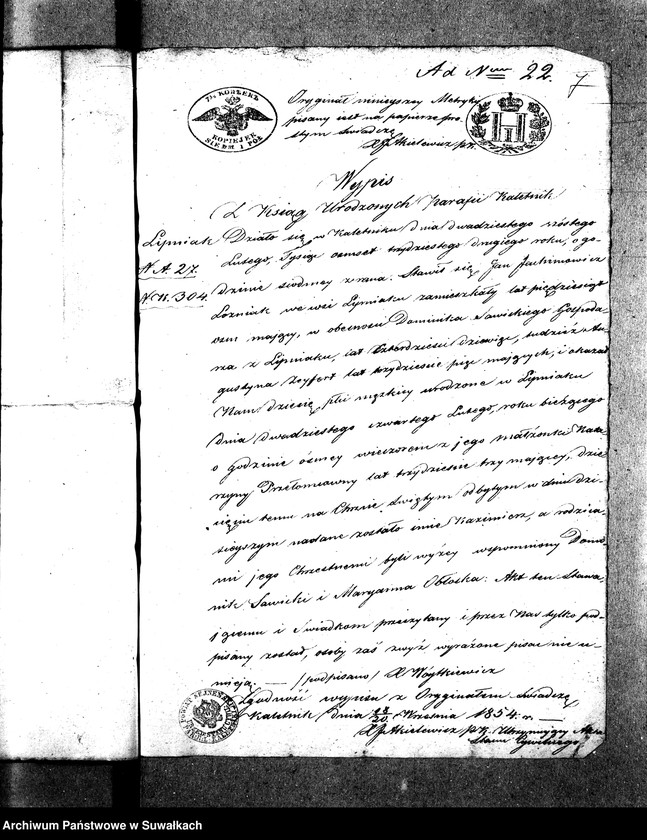 Ad Num 22. 7
7½ КОПѢЕКЪ
KOPIEJEK
SIEDM I PÓŁ
Oryginał ninieyszey Metryki
pisany iest na papierze pro=
stym świadczę
X J Akielewicz pk.
Wypis
Z Ksiąg Urodzonych Parafii Kaletnik
Lipniak
N. A. 27.
304.
Działo się w Kaletniku dnia dwudziestego szóstego
Lutego, Tysiąc osmset trzydziestego drugiego roku, o go=
dzinie siodmey z rana. Stawił się Jan Jachimowicz
we wsi Lipniaku zamieszkały lat pięćdziesiąt
maiący, w obecności Dominika Sawickiego Gospoda=
rza z Lipniaku, lat Czterdzieści dziewięć, tudzież Au=
gustyna Zeyfert lat trzydzieści pięć maiących, i okazał
Nam dziecię płci męzkiey urodzone w Lipniaku
dnia dwudziestego czwartego Lutego, roku bieżącego
o godzinie ósmey wieczorem z jego małżonki Kata=
rzyny Przełomiawny lat trzydzieście trzy maiącey, dzie=
cięciu temu na Chrzcie Świętym odbytym w dniu dzi=
sieyszym nadane zostało imie Kazimierz, a rodzica=
mi jego Chrzestnemi byli wyżey wspomniony Domi=
nik Sawicki i Maryanna Obłoska. Akt ten Stawa=
jącemu i Świadkom przeczytany i przez Nas tylko pod=
pisany został, osoby zaś zwyż wyrażone pisać nie u=
mieją. — /podpisano/ X Woytkiewicz
Zgodność wypisu z Oryginałem świadczę
Kaletnik dnia 18/30 Września 1854 r. —
X J Akielewicz p. k. Utrzymujący Akta
Stanu Cywilnego
Archiwum Państwowe w Suwałkach